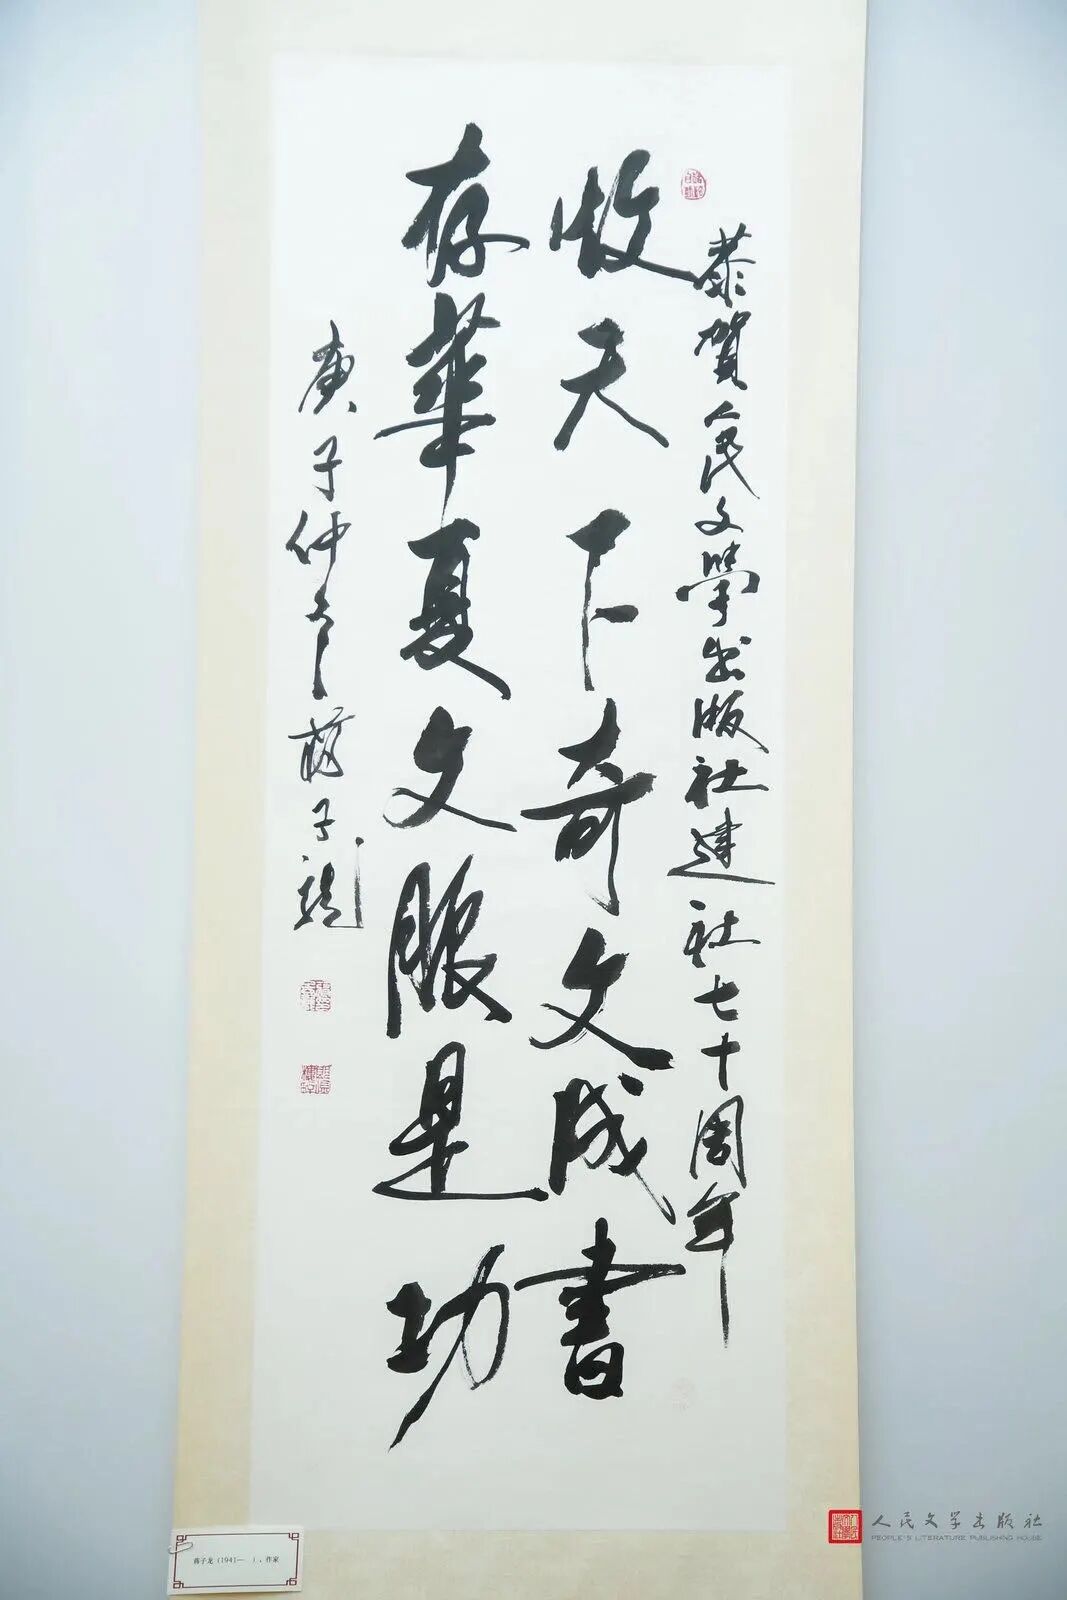 恭賀人民文學出版社建社七十周年
收天下奇文成書
存華夏文脈是功
庚子仲冬 蔣子龍
蒋子龙（1941— ），作家
人民文学出版社
PEOPLE'S LITERATURE PUBLISHING HOUSE